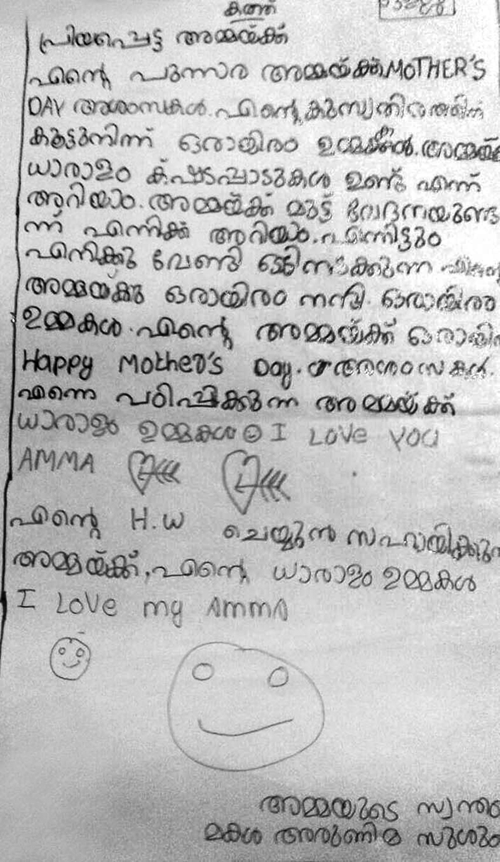 കത്ത്
പ്രിയപ്പെട്ട അമ്മയ്ക്ക്
എന്റെ പുന്നാര അമ്മയ്ക്ക് MOTHER'S
DAY ആശംസകൾ. എന്റെ
കൂട്ടുന്നിന്ന് ഒരായിരം ഉമ്മകൾ. അമ്മയ്ക്ക്
ധാരാളം കഷ്ടപ്പാടുകൾ ഉണ്ട് എന്ന്
അറിയാം. അമ്മയ്ക്ക് മുട്ട് വേദനയുണ്ടെ
ന്ന് എനിക്ക് അറിയാം. എന്നിട്ടും
എനിക്കു വേണ്ടി
അമ്മയ്ക്കു ഒരായിരം നന്ദി. ഒരായിരം
ഉമ്മകൾ. എന്റെ അമ്മയ്ക്ക് ഒരായിരം
Happy Mother's Day. ആശംസകൾ.
എന്നെ പഠിപ്പിക്കുന്ന അമ്മയ്ക്ക്
ധാരാളം ഉമ്മകൾ I LOVE YOU
AMMA
എന്റെ H.W ചെയ്യുൻ സഹായിക്കുന്ന
അമ്മയ്ക്ക്, എന്റെ ധാരാളം ഉമ്മകൾ
I LOVE my AMMA
അമ്മയുടെ സ്വന്തം
മകൾ അരുണിമ